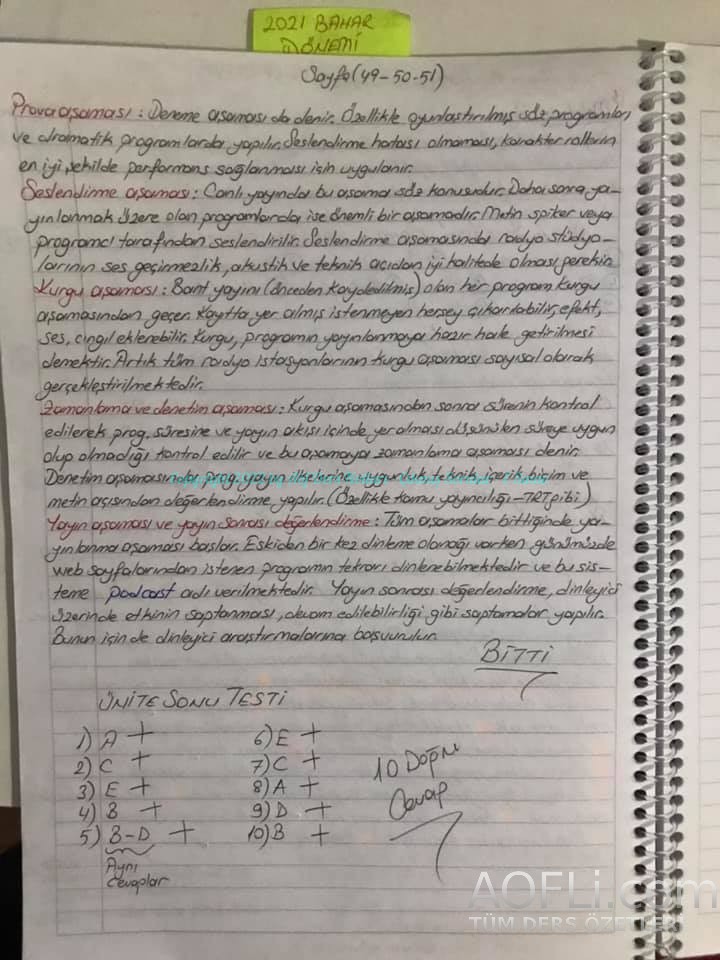 2021 BAHAR
DÖNEMİ
Sayfa (49-50-51)
Prova aşaması: Deneme aşaması da denir. Özellikle oyunlaştırılmış söz programları
ve dramatik programlarda yapılır. Seslendirme hatası olmaması, karakter rollerin
en iyi şekilde performans sağlanması için uygulanır.
Seslendirme aşaması: Canlı yayında bu aşama söz konusudur. Daha sonra ya-
yınlanmak üzere olan programlarda ise önemli bir aşamadır. Metin spiker veya
programcı tarafından seslendirilir. Seslendirme aşamasında radyo stüdyo-
larının ses geçirmezlik, akustik ve teknik açıdan iyi kalitede olması gerekir.
Kurgu aşaması: Bant yayını (önceden kaydedilmiş) olan her program kurgu
aşamasından geçer. Kayıtta yer almış istenmeyen herşey çıkarılabilir, efekt,
ses, cıngıl eklenebilir. Kurgu, programın yayınlanmaya hazır hale getirilmesi
demektir. Artık tüm radyo istasyonlarının kurgu aşaması sayısal olarak
gerçekleştirilmektedir.
Zamanlama ve denetim aşaması: Kurgu aşamasından sonra sürenin kontrol
edilerek prog. süresine ve yayın akışı içinde yer alması düşünülen süreye uygun
olup olmadığı kontrol edilir ve bu aşamaya zamanlama aşaması denir.
Denetim aşamasında prog. yayın ilkelerine uygunluk, teknik, içerik, biçim ve
metin açısından değerlendirme yapılır. (Özellikle kamu yayıncılığı-TRT gibi)
Yayın aşaması ve yayın sonrası değerlendirme: Tüm aşamalar bittiğinde ya-
yınlanma aşaması başlar. Eskiden bir kez dinleme olanağı varken günümüzde
web sayfalarından istenen programın tekrarı dinlenebilmektedir ve bu sis-
teme podcast adı verilmektedir. Yayın sonrası değerlendirme, dinleyici
üzerinde etkinin saptanması, devam edilebilirliği gibi saptamalar yapılır.
Bunun için de dinleyici araştırmalarına başvurulur.
BİTTİ
ÜNİTE SONU TESTİ
1) A +
2) C +
3) E +
4) B +
5) B-D +
Aynı
cevaplar
6) E +
7) C +
8) A +
9) D +
10) B +
10 Doğru
Cevap
AOFLi.com
TÜM DERS ÖZETLERİ